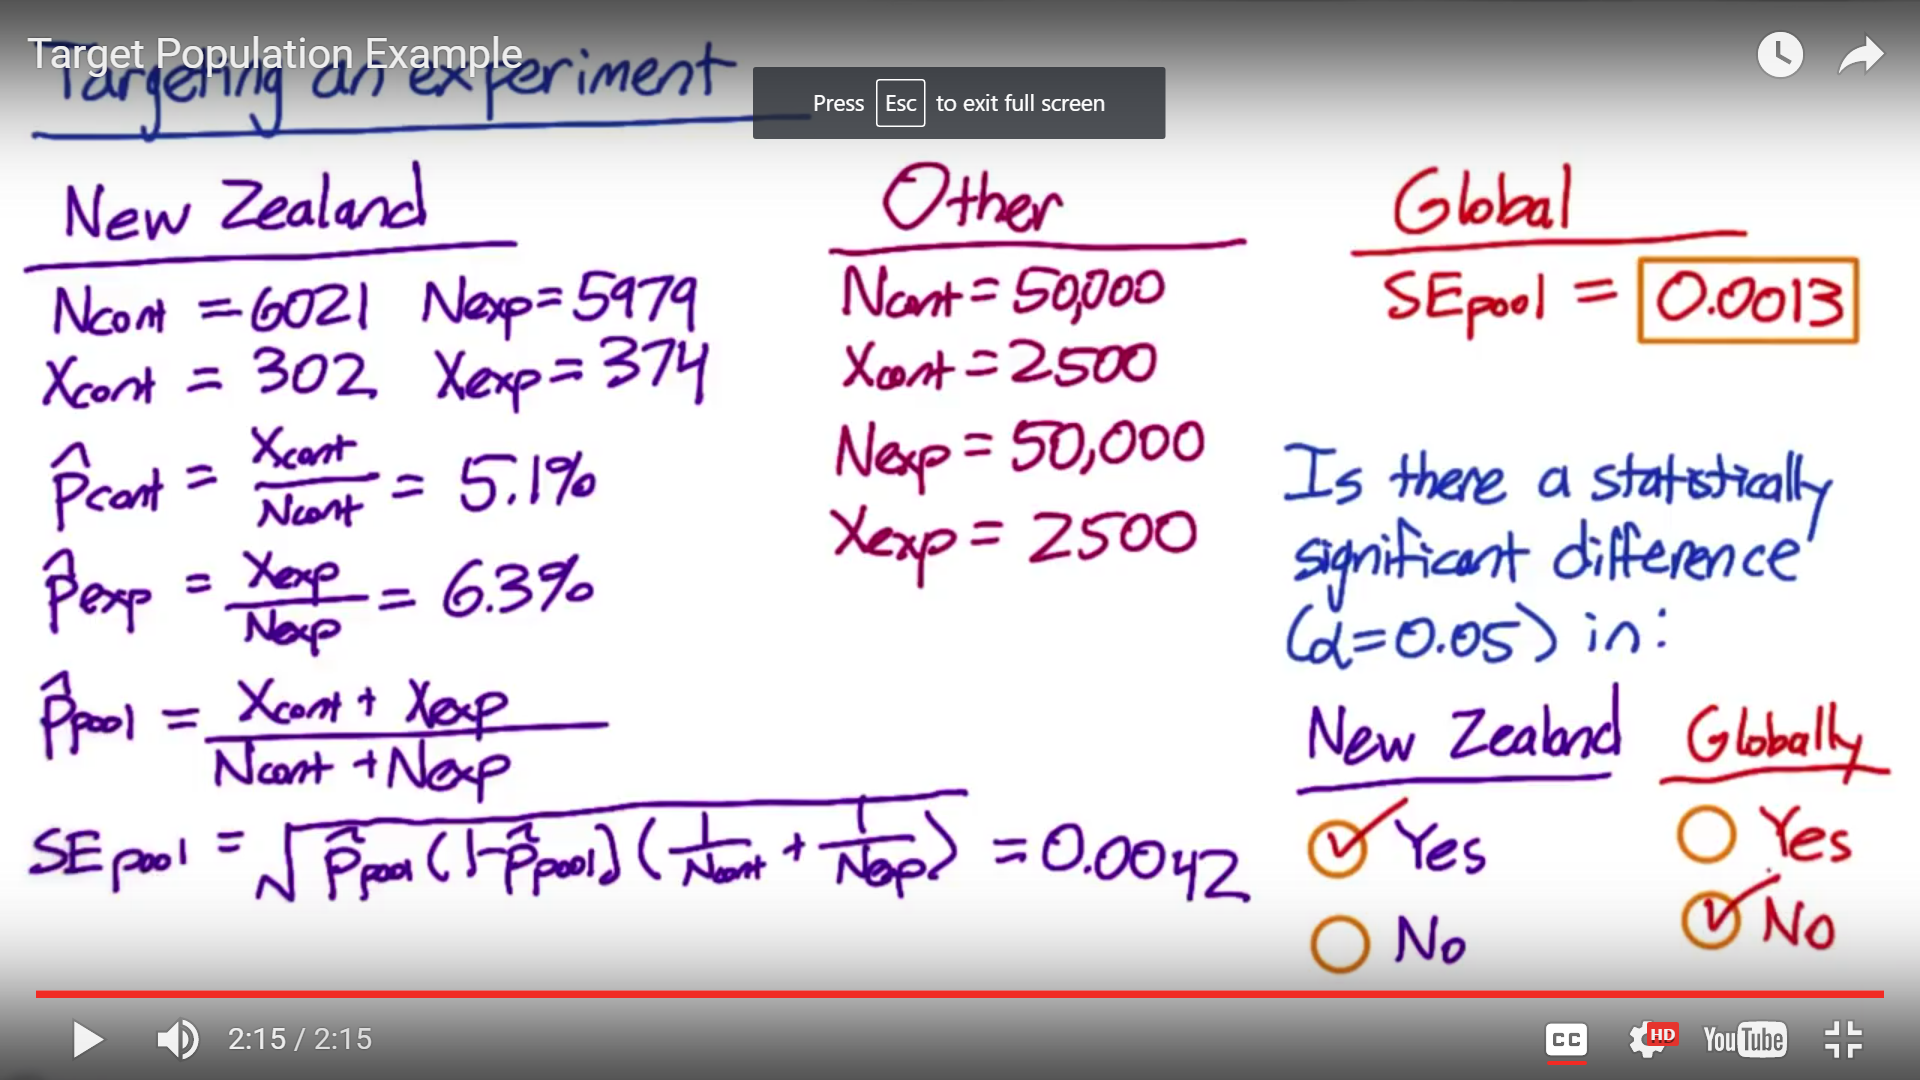 Target Population Example
Targeting an experiment
Press Esc to exit full screen
New Zealand
Ncont = 6021 Nexp = 5979
Xcont = 302 Xexp = 374
p̂cont = Xcont / Ncont = 5.1%
p̂exp = Xexp / Nexp = 6.3%
p̂pool = Xcont + Xexp / Ncont + Nexp
SEpool = √p̂pool (1-p̂pool) (1/Ncont + 1/Nexp) = 0.0042
Other
Ncont = 50,000
Xcont = 2500
Nexp = 50,000
Xexp = 2500
Global
SEpool = 0.0013
Is there a statistically
significant difference
(α=0.05) in:
New Zealand
Yes
No
Globally
Yes
No
2:15 / 2:15
CC
HD
YouTube